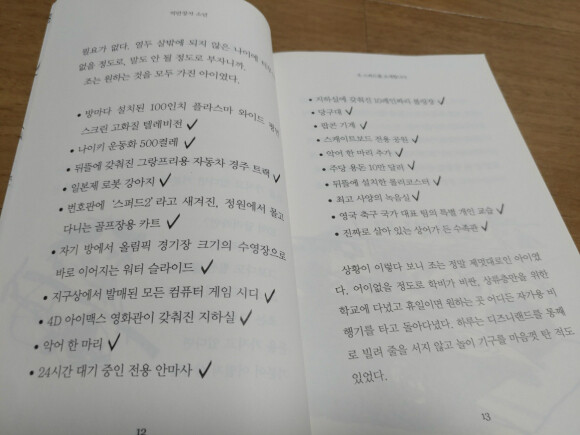 억만장자 소년
필요가 없다. 열두 살밖에 되지 않은 나이에
없을 정도로, 말도 안 될 정도로 부자니까.
조는 원하는 것을 모두 가진 아이였다.
• 방마다 설치된 100인치 플라스마 와이드 평면
스크린 고화질 텔레비전 ✓
• 나이키 운동화 500켤레 ✓
• 뒤뜰에 갖춰진 그랑프리용 자동차 경주 트랙 ✓
• 일본제 로봇 강아지 ✓
• 번호판에 '스퍼드2'라고 새겨진, 정원에서 몰고
다니는 골프장용 카트 ✓
• 자기 방에서 올림픽 경기장 크기의 수영장으로
바로 이어지는 워터 슬라이드 ✓
• 지구상에서 발매된 모든 컴퓨터 게임 시디 ✓
• 4D 아이맥스 영화관이 갖춰진 지하실 ✓
• 악어 한 마리 ✓
• 24시간 대기 중인 전용 안마사 ✓
12
• 지하실에 갖춰진 10레인짜리 볼링장 ✓
• 당구대 ✓
• 팝콘 기계 ✓
• 스케이트보드 전용 공원 ✓
• 악어 한 마리 추가 ✓
• 주당 용돈 10만 달러 ✓
• 뒤뜰에 설치한 롤러코스터 ✓
• 최고 사양의 녹음실 ✓
• 영국 축구 국가 대표 팀의 특별 개인 교습 ✓
• 진짜로 살아 있는 상어가 든 수족관 ✓
상황이 이렇다 보니 조는 정말 제멋대로인 아이였
다. 어이없을 정도로 학비가 비싼, 상류층만을 위한
학교에 다녔고 휴일이면 원하는 곳 어디든 자가용 비
행기를 타고 돌아다녔다. 하루는 디즈니랜드를 통째
로 빌려 줄을 서지 않고 놀이 기구를 마음껏 탄 적도
있었다.
13